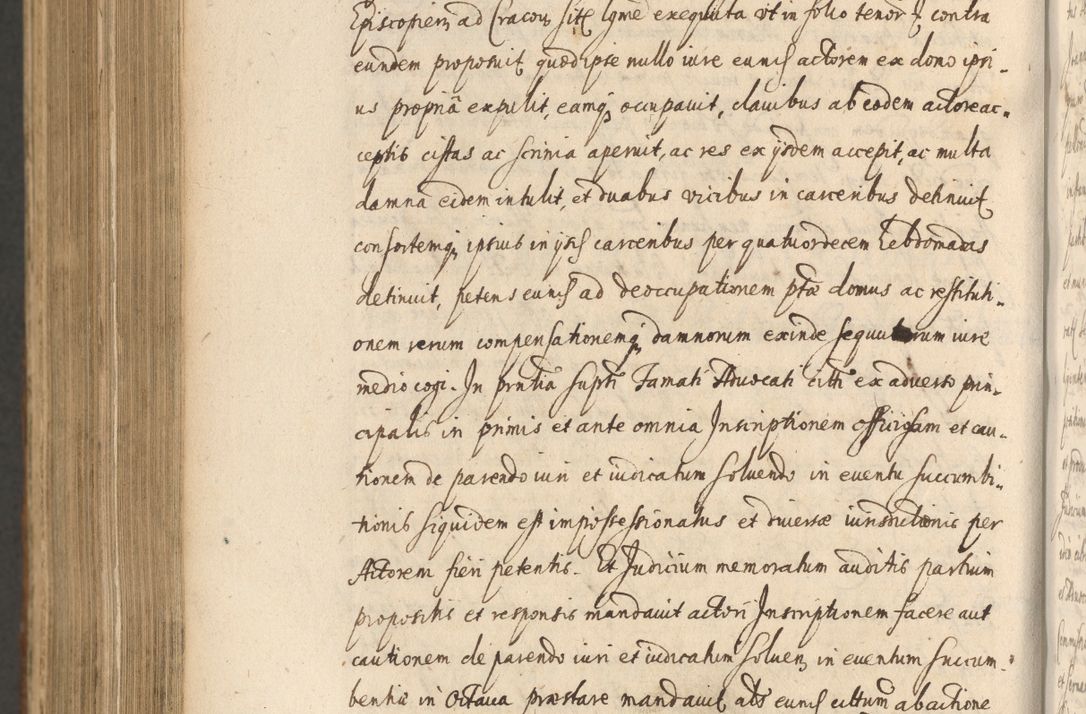 Episcopiem ad Cracou sitt lgme exequuta vt in folio tenor contra
eundem proposuit quod ipse nullo iure eund actorem ex domo ipsi-
us propriã expulit, eamq occupauit, clauibus ab eodem actore ac-
ceptis cistas ac scrinia aperuit, ac res ex ijsdem accepit, ac multa
damna eidem intulit, et duabus vicibus in carceribus detinuit
consortemq ipsius in ijsd carceribus per quatuordecem hebdomadas
detinuit, petens eund ad deoccupationem ptæ domus ac restituti-
onem rerum compensationemq damnorum exinde sequutorum iure
medio cogi. In prntia supti Famati Aduocati citti ex aduerso prin-
cipalis in primis et ante omnia Inscriptionem et cau-
tionem de parendo iuri et iudicatum soluendo in euentu succumbi-
tionis siquidem est impossessionatus et diuersæ iurisdictionis per
Actorem fieri petentis. Et Judicium memoratum auditis partium
propositis et responsis mandauit actori Inscriptionem facere aut
cautionem de parendo iuri et iudicatum soluen in euentum succum-
bentiæ in Octaua præstare mandauit als eund cittum ab actione